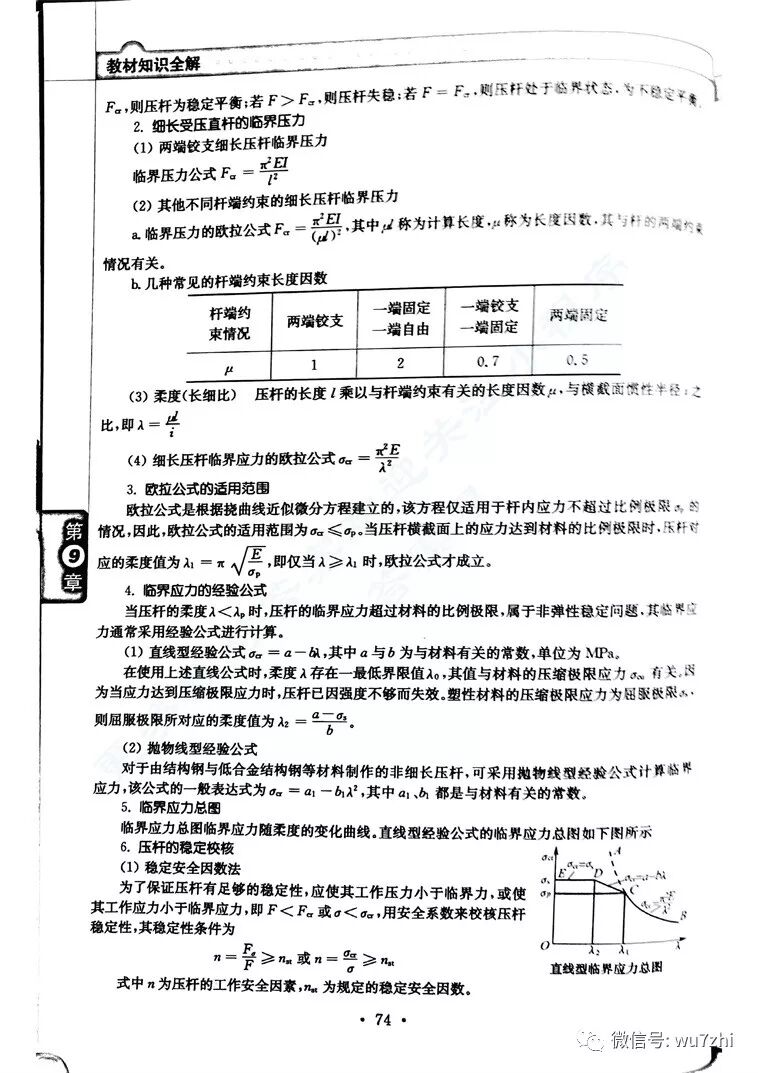 教材知识全解
F_cr,则压杆为稳定平衡;若 F > F_cr,则压杆失稳;若 F = F_cr,则压杆处于临界状态,为不稳定平衡.
2. 细长受压直杆的临界压力
(1) 两端铰支细长压杆临界压力
临界压力公式 F_cr = π²EI/l²
(2) 其他不同杆端约束的细长压杆临界压力
a. 临界压力的欧拉公式 F_cr = π²EI/(μl)²,其中 μl 称为计算长度,μ 称为长度因数,其与杆的两端约束
情况有关。
b. 几种常见的杆端约束长度因数
杆端约束情况 两端铰支 一端固定一端自由 一端铰支一端固定 两端固定
μ 1 2 0.7 0.5
(3) 柔度(长细比) 压杆的长度 l 乘以与杆端约束有关的长度因数 μ,与横截面惯性半径 i 之
比,即 λ = μl/i
(4) 细长压杆临界应力的欧拉公式 σ_cr = π²E/λ²
3. 欧拉公式的适用范围
欧拉公式是根据挠曲线近似微分方程建立的,该方程仅适用于杆内应力不超过比例极限 σ_p 的
情况,因此,欧拉公式的适用范围为 σ_cr ≤ σ_p。当压杆横截面上的应力达到材料的比例极限时,压杆对
应的柔度值为 λ₁ = π √(E/σ_p),即仅当 λ ≥ λ₁ 时,欧拉公式才成立。
第9章
4. 临界应力的经验公式
当压杆的柔度 λ < λ_p 时,压杆的临界应力超过材料的比例极限,属于非弹性稳定问题,其临界应
力通常采用经验公式进行计算。
(1) 直线型经验公式 σ_cr = a − bλ,其中 a 与 b 为与材料有关的常数,单位为 MPa。
在使用上述直线公式时,柔度 λ 存在一最低界限值 λ₀,其值与材料的压缩极限应力 σ_cu 有关。因
为当应力达到压缩极限应力时,压杆已因强度不够而失效。塑性材料的压缩极限应力为屈服极限 σ_s,
则屈服极限所对应的柔度值为 λ₂ = (a − σ_s)/b。
(2) 抛物线型经验公式
对于由结构钢与低合金结构钢等材料制作的非细长压杆,可采用抛物线型经验公式计算临界
应力,该公式的一般表达式为 σ_cr = a₁ − b₁λ²,其中 a₁、b₁ 都是与材料有关的常数。
5. 临界应力总图
临界应力总图临界应力随柔度的变化曲线。直线型经验公式的临界应力总图如下图所示
6. 压杆的稳定校核
(1) 稳定安全因数法
为了保证压杆有足够的稳定性,应使其工作压力小于临界力,或使
其工作应力小于临界应力,即 F < F_cr 或 σ < σ_cr,用安全系数来校核压杆
稳定性,其稳定性条件为
n = F_cr/F ≥ n_st 或 n = σ_cr/σ ≥ n_st
式中 n 为压杆的工作安全因素,n_st 为规定的稳定安全因数。
σ_cr A
σ_cr=σ_s
E D σ_cr=a−bλ
σ_s
σ_p C
σ_cr=π²E/λ²
B
O λ₂ λ₁ λ
直线型临界应力总图
· 74 ·
微信号: wu7zhi